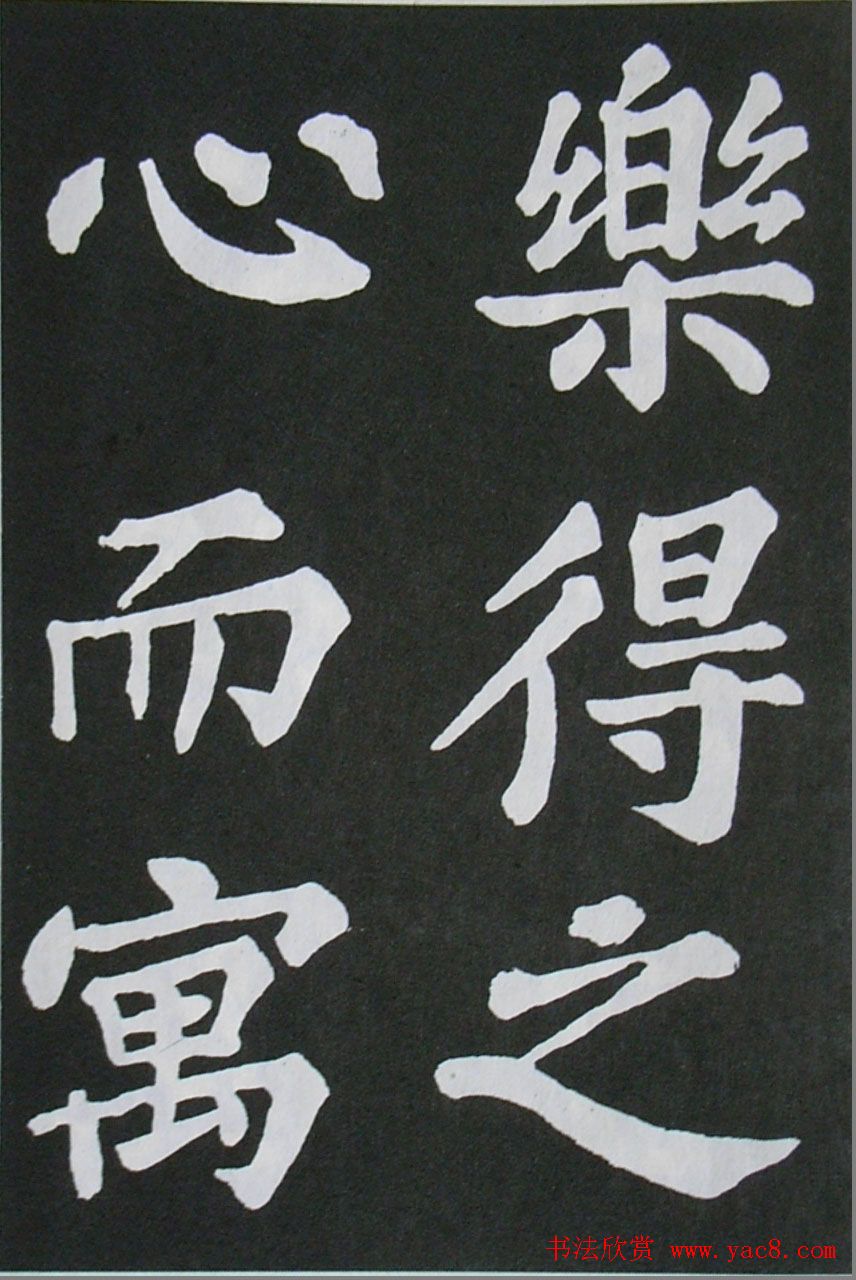 樂得之
心而寓
书法欣赏 www.yac8.com